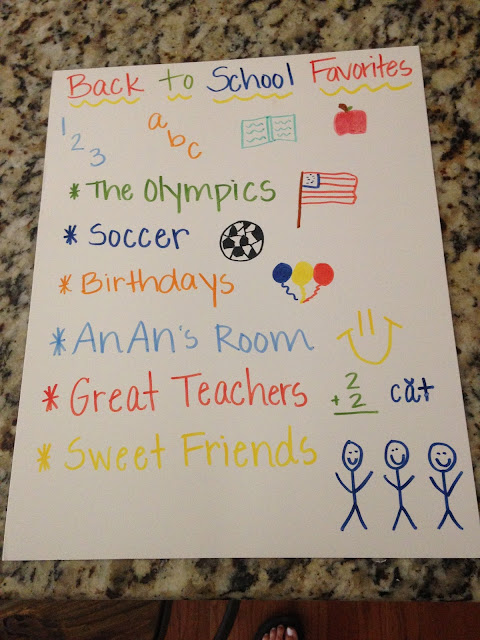 Back to School Favorites
1 2 3 a b c
* The Olympics
* Soccer
* Birthdays
* AnAn's Room
* Great Teachers 2 + 2 căt
* Sweet Friends